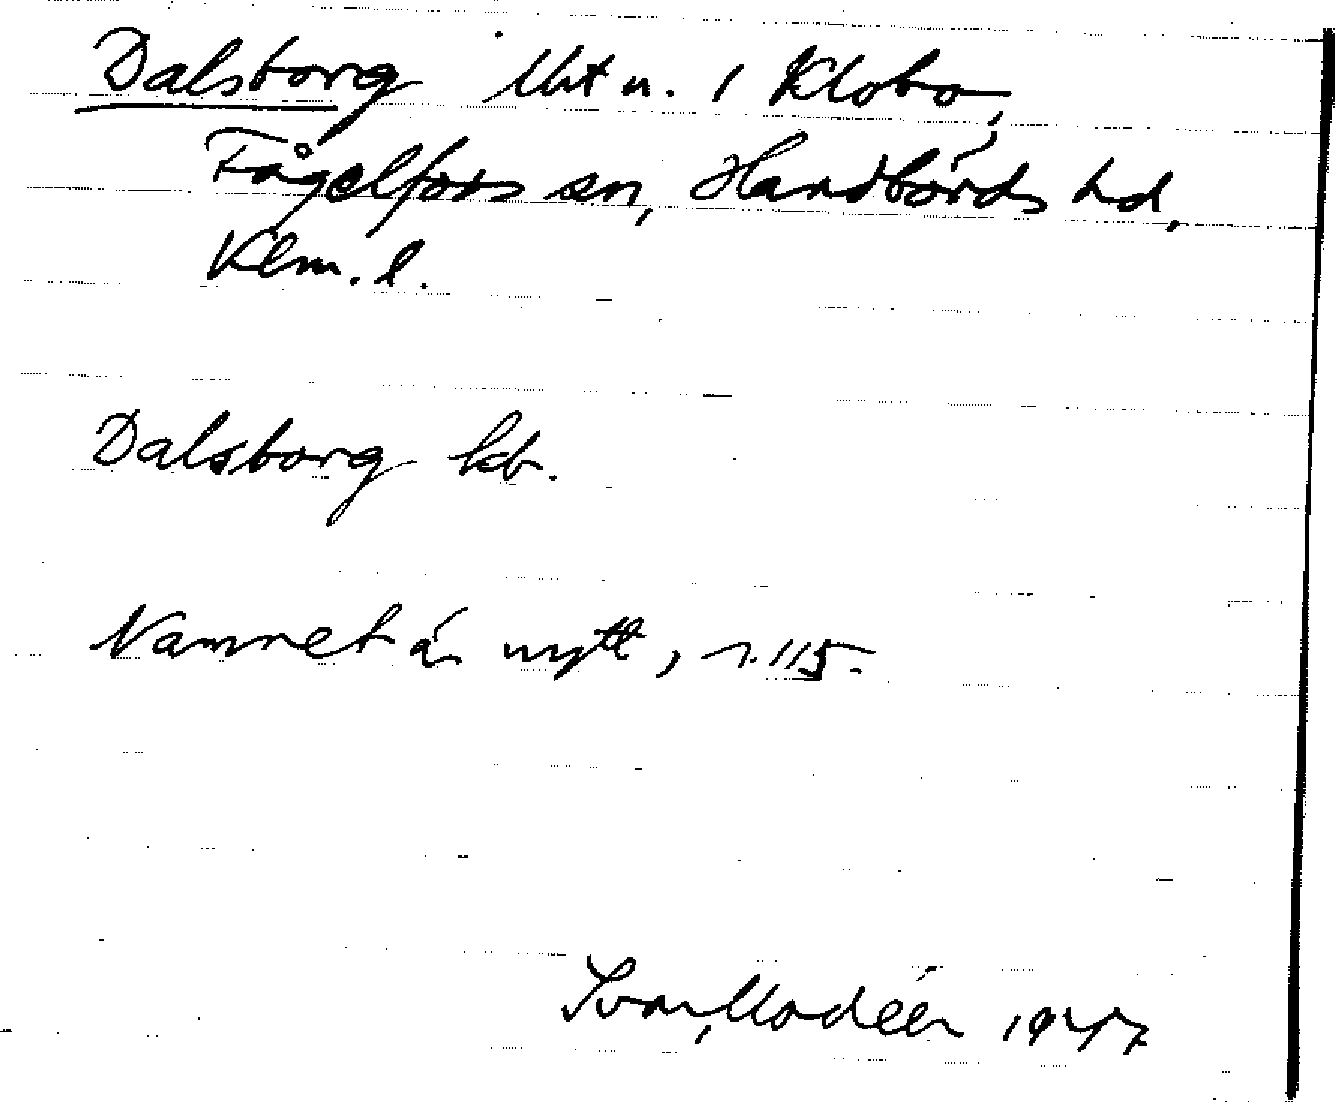 Dalsborg lht u. i Klobo,
Fågelfors sn, Handbörds hd,
Klm. l.
Dalsborg kb.
Namnet är nytt, s. 115.
Ivar Modéer 1947